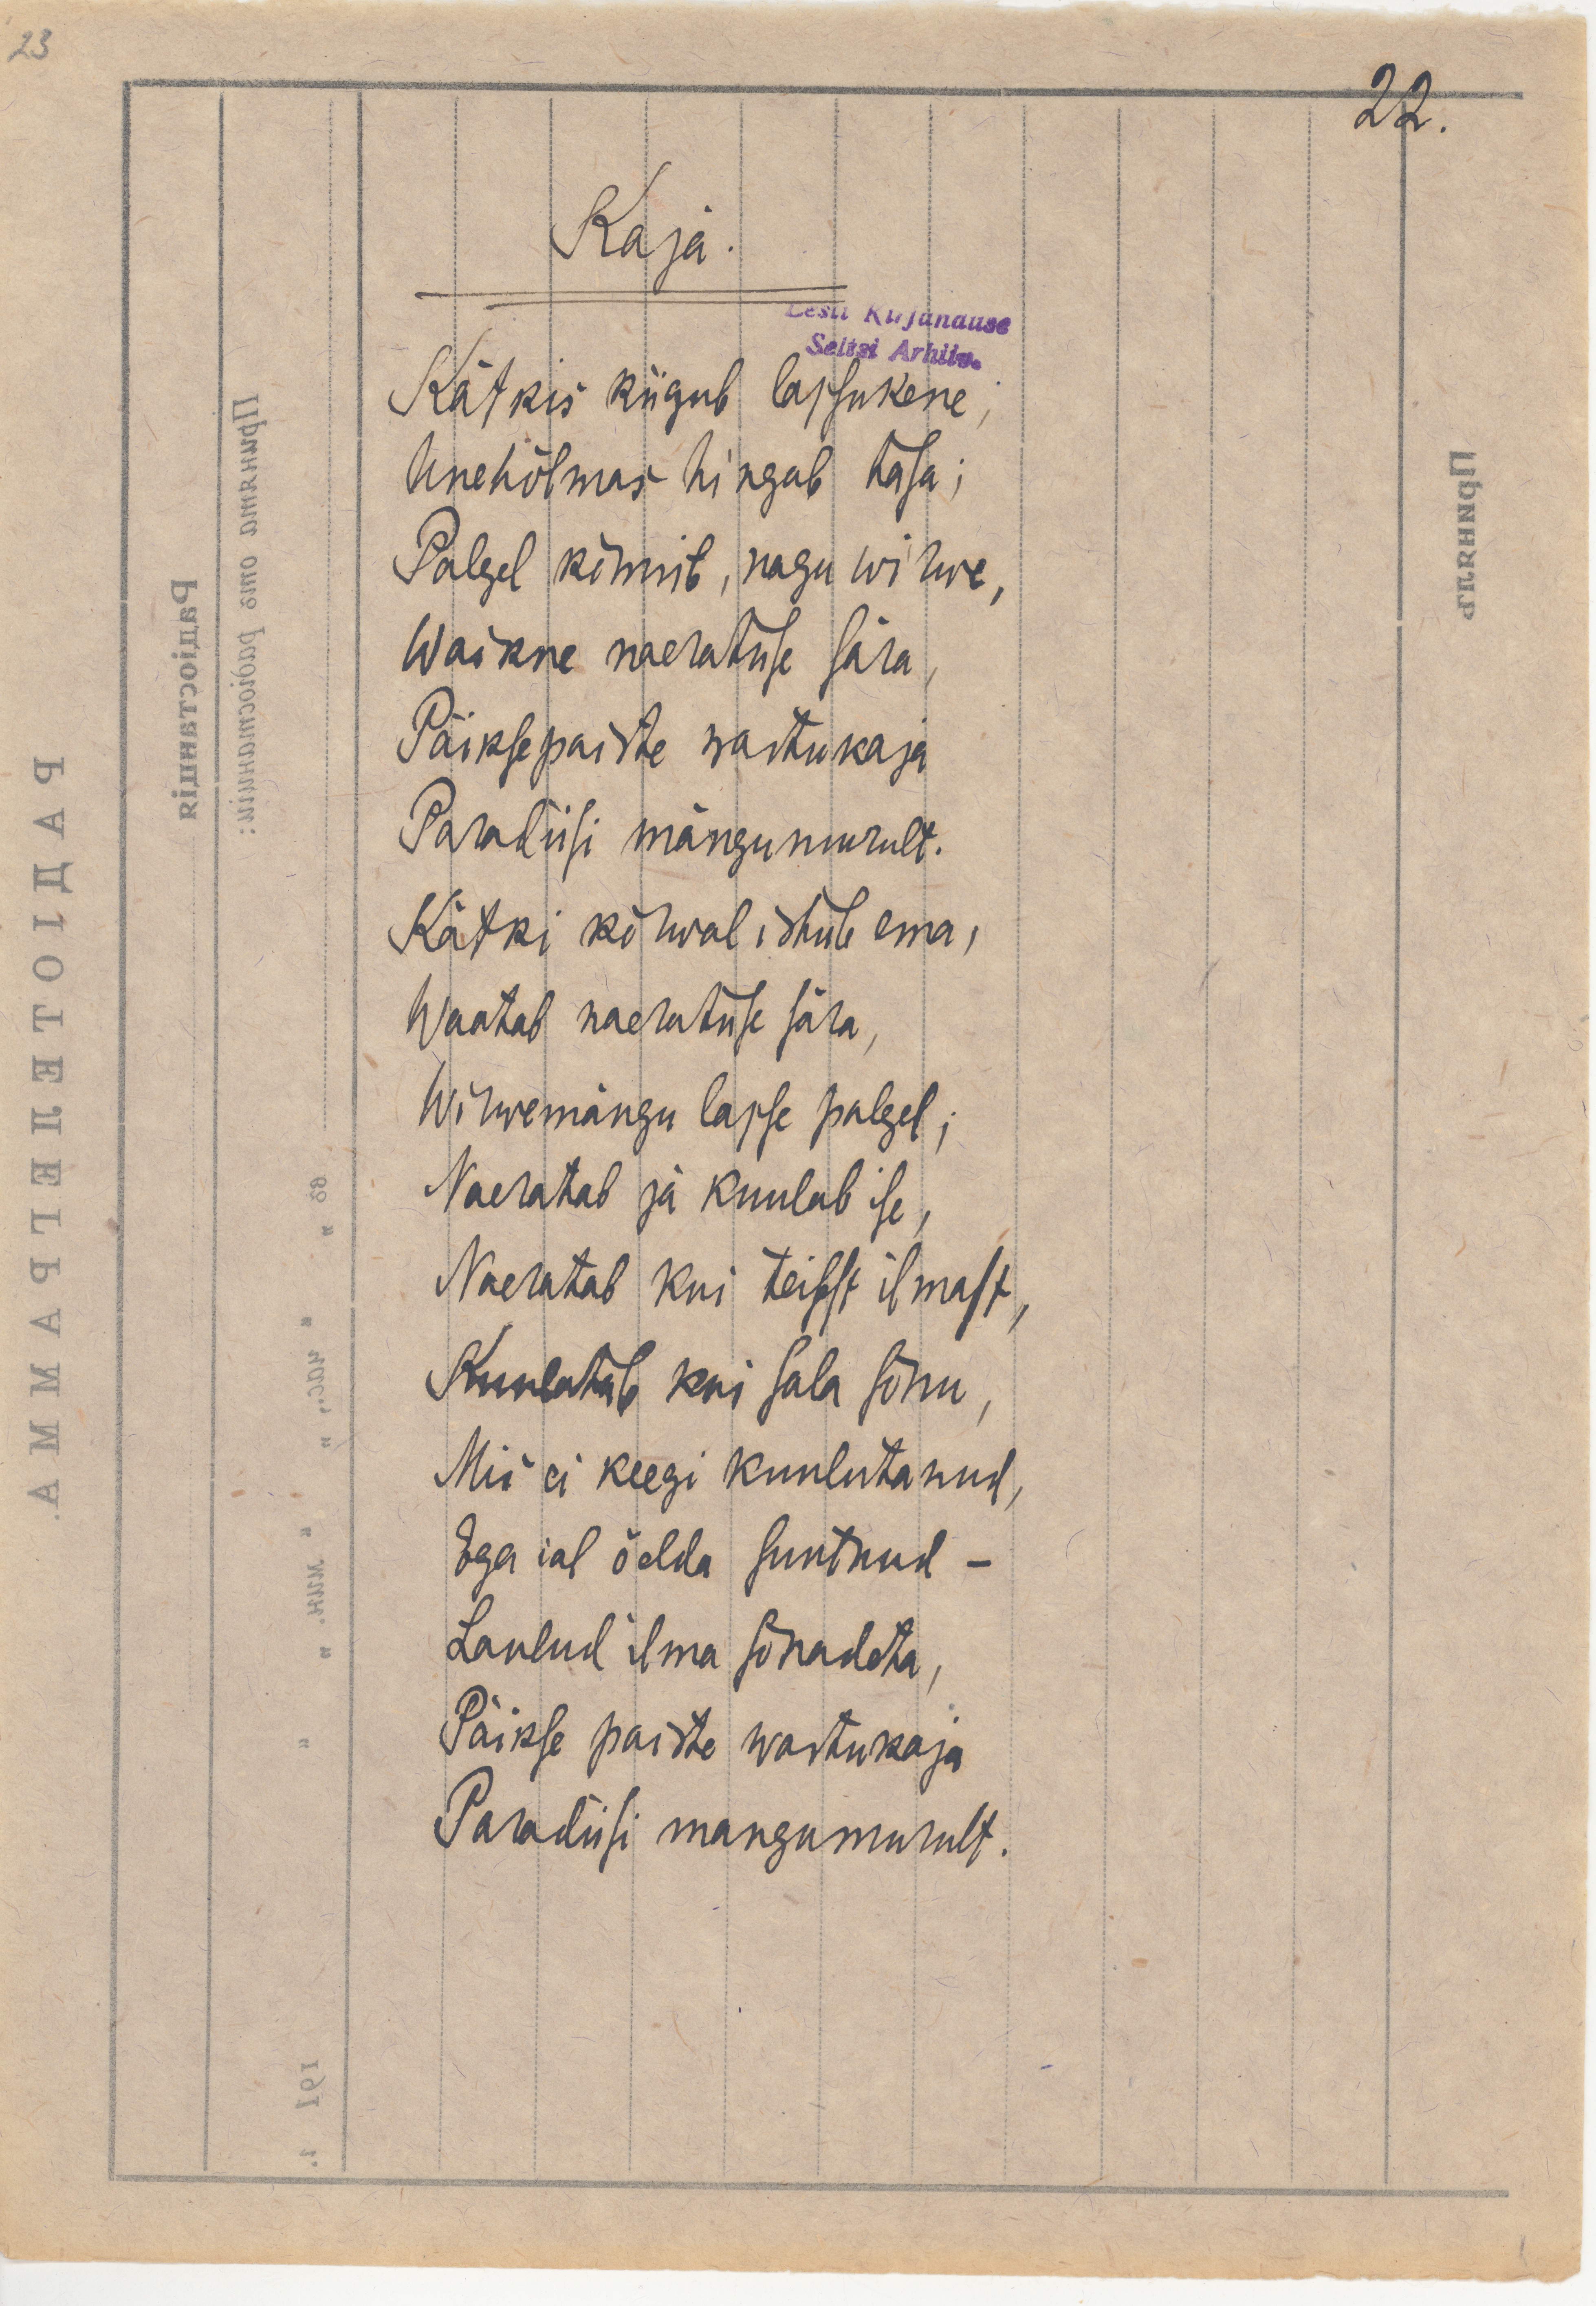 23
22.
Kaja.
Eesti Kirjanduse
Seltsi Arhiiv.
Kätkis kiigub lapsukene;
Unehõlmas hingab tasa;
Palgel kõmmib, nagu wirwe,
Waikne naeratuse sära,
Päiksepaiste wastukaja
Paradiisi mängumurult.
Kätki kõrwal istub ema,
Waatab naeratuse sära,
Wirwemängu lapse palgel;
Naeratab ja kuulab ise,
Naeratab kui teisest ilmast,
Kuulatab kui sala sõnu,
Mis ei keegi kuulutanud,
Ega ial öelda suutnud –
Laulud ilma sõnadeta,
Päikse paiste wastukaja
Paradiisi mangumurult.
РАДІОТЕЛЕГРАММА.
Радіостанція
Принята отъ радіостанціи:
го
" час., " " мин. "
191 г.
Принялъ